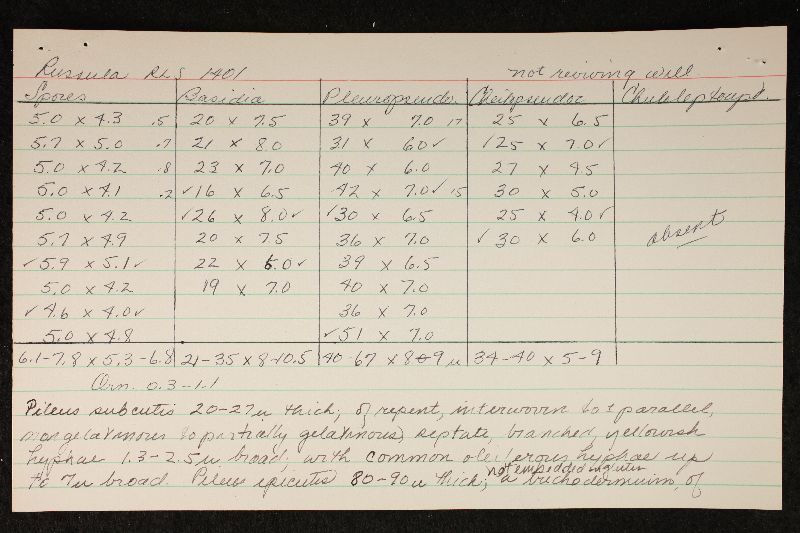 Russula RLS 1401 not reviving well
Spores Basidia Pleuropseudo. Cheilopseudo
5.0 x 4.3 .5 20 x 7.5 39 x 7.0 17 25 x 6.5
5.7 x 5.0 .7 21 x 8.0 31 x 6.0✓ ✓25 x 7.0✓
5.0 x 4.2 .8 23 x 7.0 40 x 6.0 27 x 4.5
5.0 x 4.1 .2 ✓16 x 6.5 42 x 7.0✓ 15 30 x 5.0
5.0 x 4.2 ✓26 x 8.0✓ ✓30 x 6.5 25 x 4.0✓ absent
5.7 x 4.9 20 x 7.5 36 x 7.0 ✓30 x 6.0
✓5.9 x 5.1✓ 22 x 6.0✓ 39 x 6.5
5.0 x 4.2 19 x 7.0 40 x 7.0
✓4.6 x 4.0✓ 36 x 7.0
5.0 x 4.8 ✓51 x 7.0
6.1-7.8 x 5.3-6.8 21-35 x 8-10.5 40-67 x 8-9 u 34-40 x 5-9
Orn. 0.3-1.1
Pileus subcutis 20-27 u thick, of repent, interwoven to ± parallel,
nongelatinous to partially gelatinous, septate, branched, yellowish
hyphae 1.3-2.5 u broad, with common oleiferous hyphae up
to 7 u broad. Pileus epicutis 80-90 u thick, not embedded in gluten a trichodermium, of